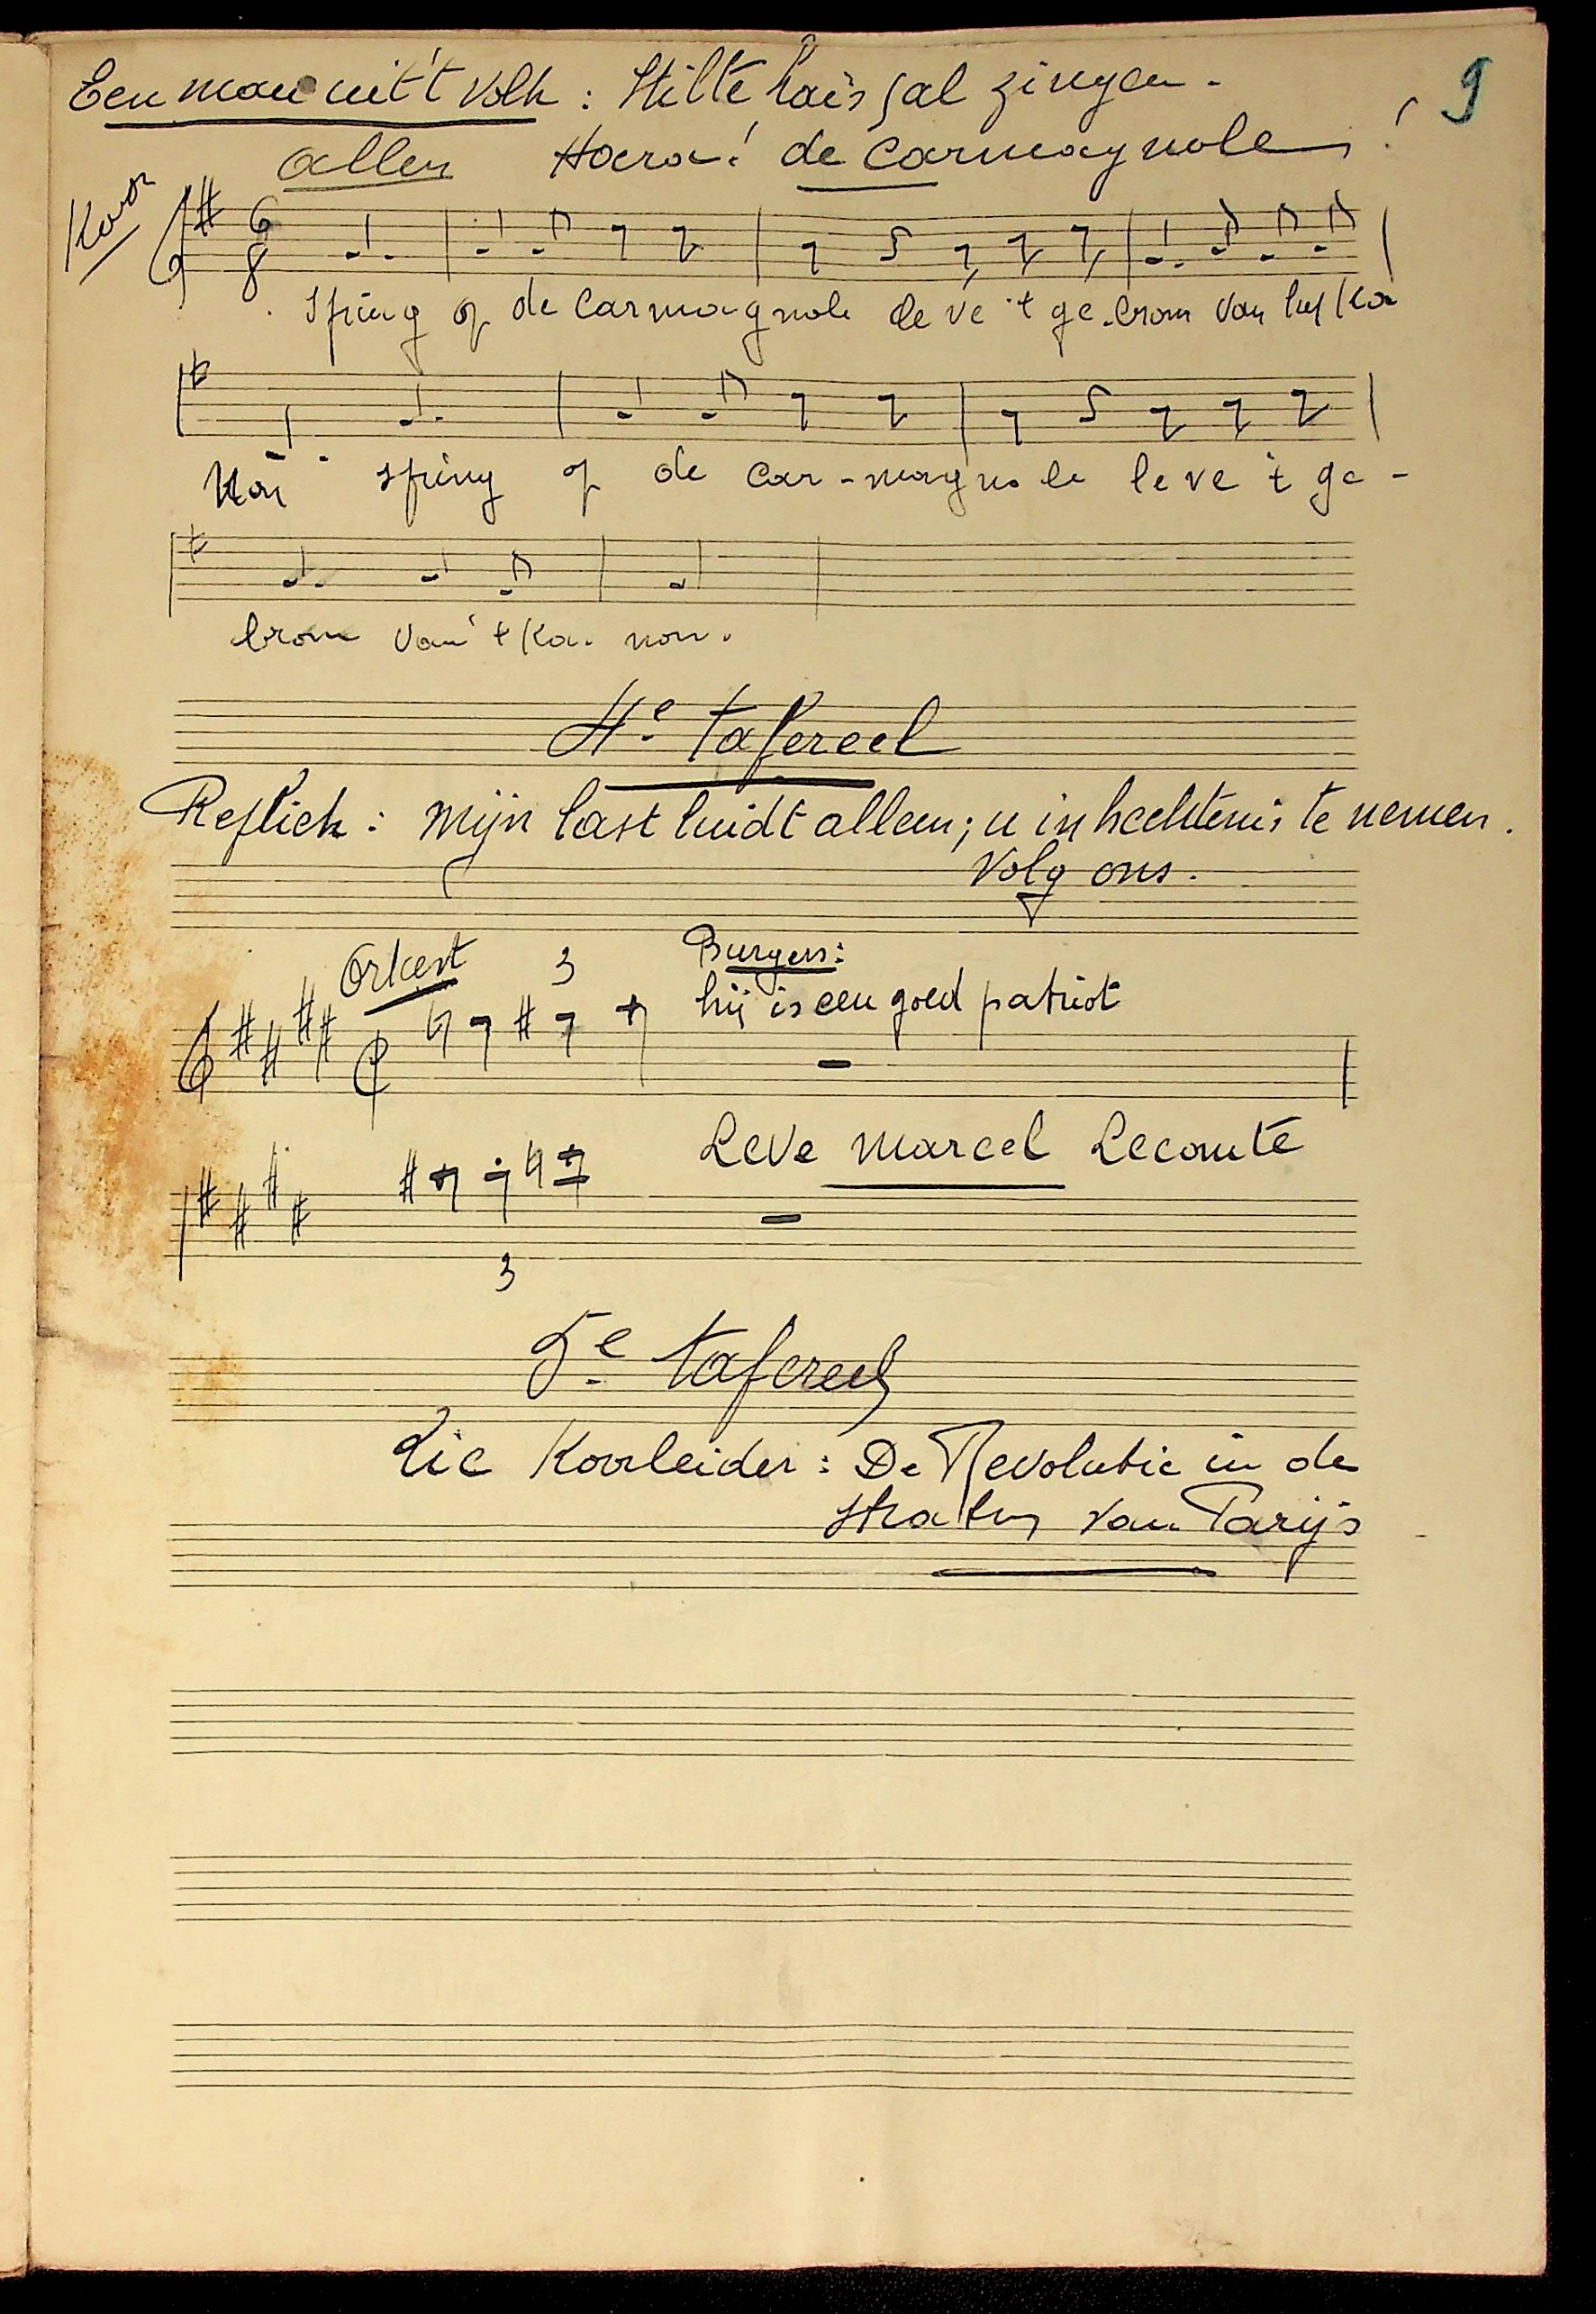 9
Een man uit 't volk : Stilte Laïs sal zingen.
allen Hoera! de Carmagnole !
Koor
6
8
Spring op de Carmagnole leve 't ge-brom van het Ka
Non spring op de Car-magnole leve 't ge-
brom van 't Ka. non.
4e. Tafereel
Repliek : Mijn last luidt alleen; u in hechtenis te nemen.
Volg ons.
Orkest 3 Burgers:
hij is een goed patriot
Leve Marcel Lecomte
3
5e. tafereel
Zie Koorleider : De Revolutie in de
straten van Parijs